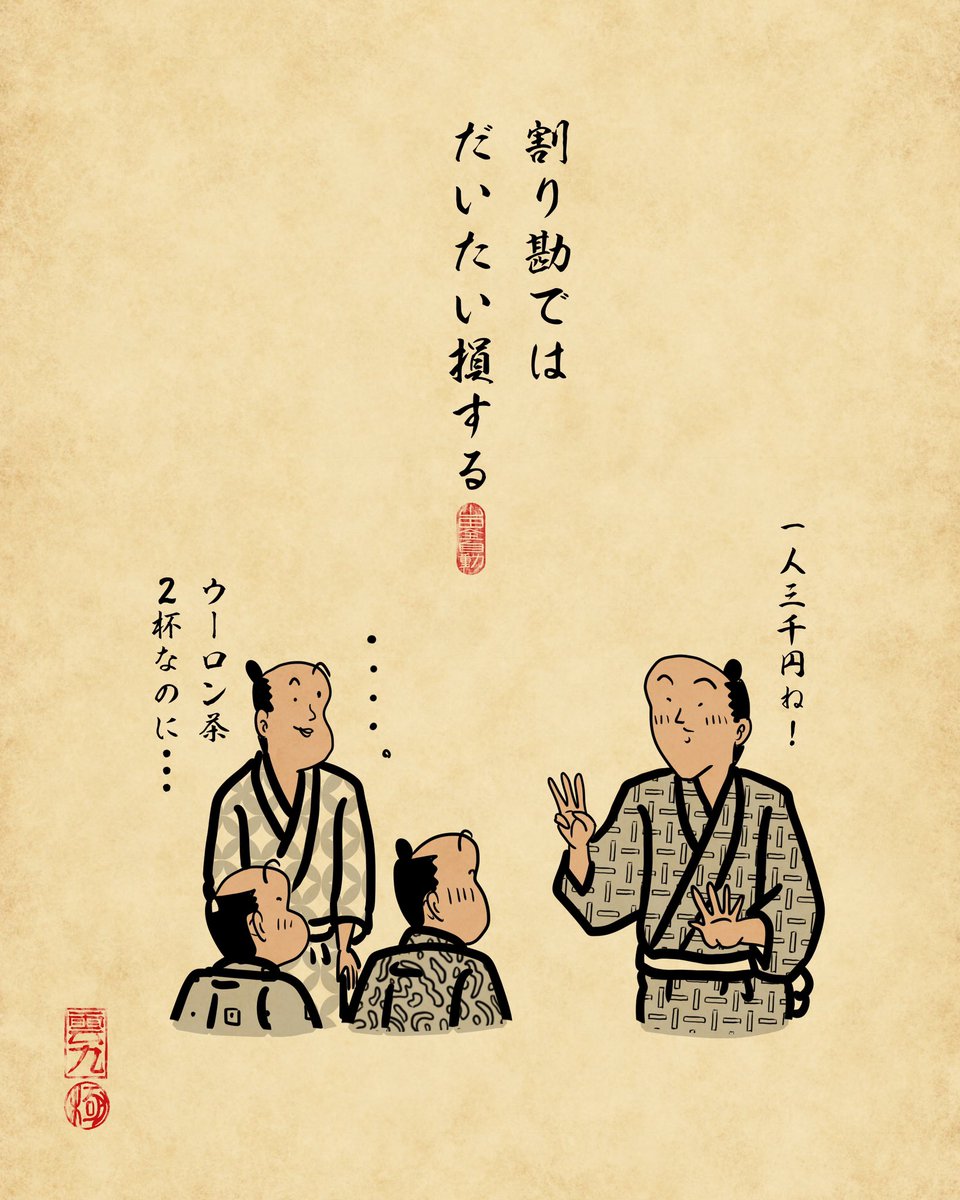 割り勘では
だいたい損する
一人三千円ね！
・・・・。
ウーロン茶
２杯なのに・・・